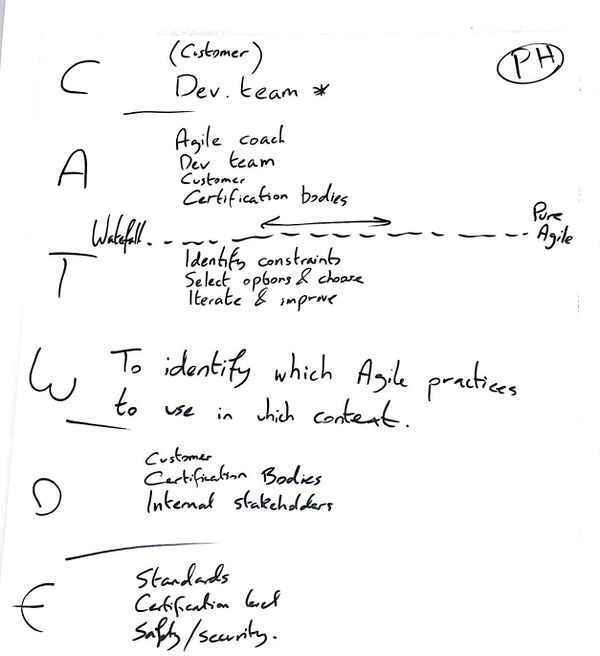 (Customer)
PH
C
Dev. team *
Agile coach
A
Dev team
Customer
Certification bodies
Waterfall
Pure
Agile
T
Identify constraints
Select options & choose
Iterate & improve
W
To identify which Agile practices
to use in which context.
Customer
D
Certification Bodies
Internal stakeholders
Standards
E
Certification level
Safety/security.